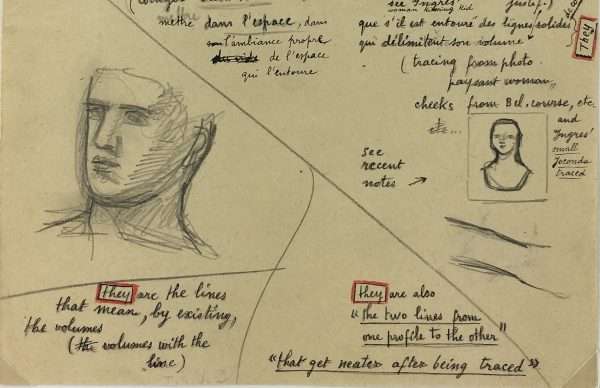 mettre dans l'espace, dans
son l'ambiance propre
du vide de l'espace
qui l'entoure
see Ingres'
woman kissing kid
que s'il est entouré des lignes solides
qui délimitent son volume
They
(tracing from photo
paysant woman,
cheeks from Bel. course, etc.
etc...
and
Ingres'
small
Joconda
traced
see
recent
notes →
they are the lines
that mean, by existing,
the volumes
(the volumes with the
line)
they are also
"the two lines from
one profile to the other"
"that get neater after being traced"